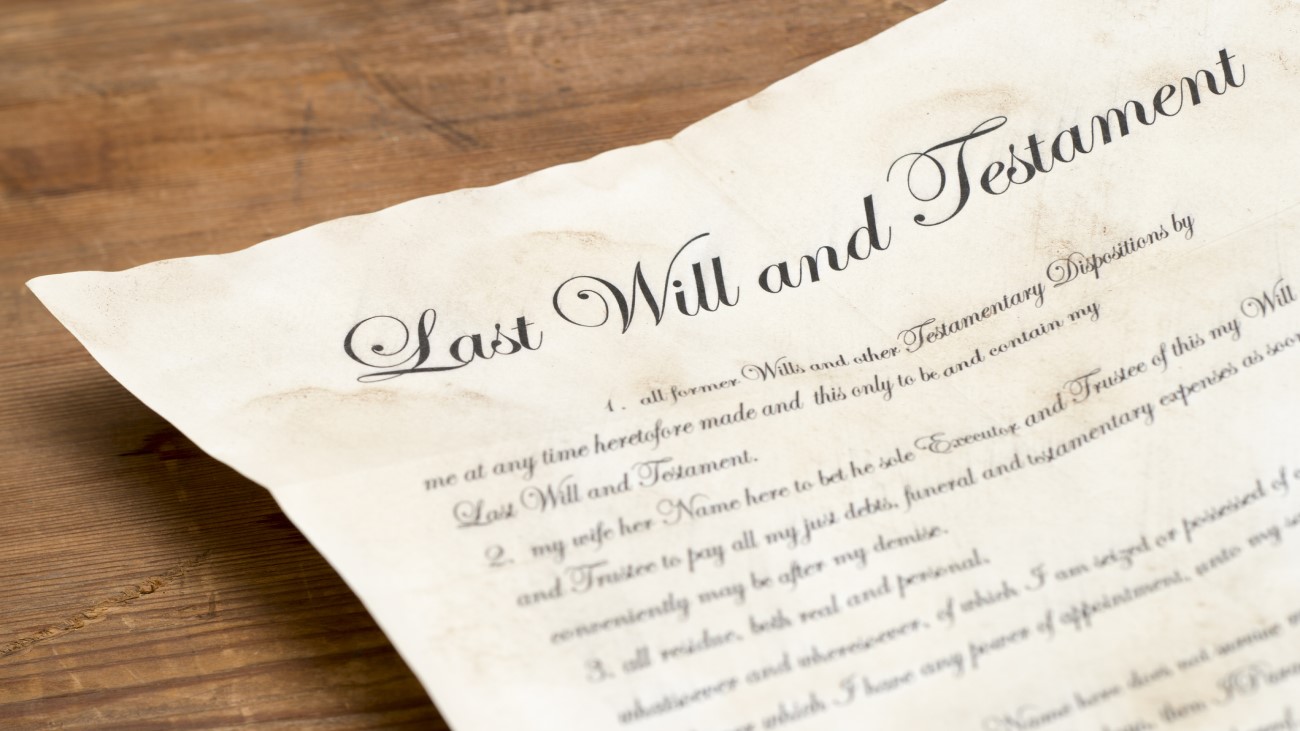 Last Will and Testament
1. all former Wills and other Testamentary Dispositions by
me at any time heretofore made and this only to be and contain my
Last Will and Testament.
2. my wife her Name here to bet he sole Executor and Trustee of this my Will
and Trustee to pay all my just debts, funeral and testamentary expenses as soon
conveniently may be after my demise.
3. all residue, both real and personal,
whatsoever and wheresoever, of which I am seized or possessed of
which I have any power of appointment, unto my
Name here does not survive